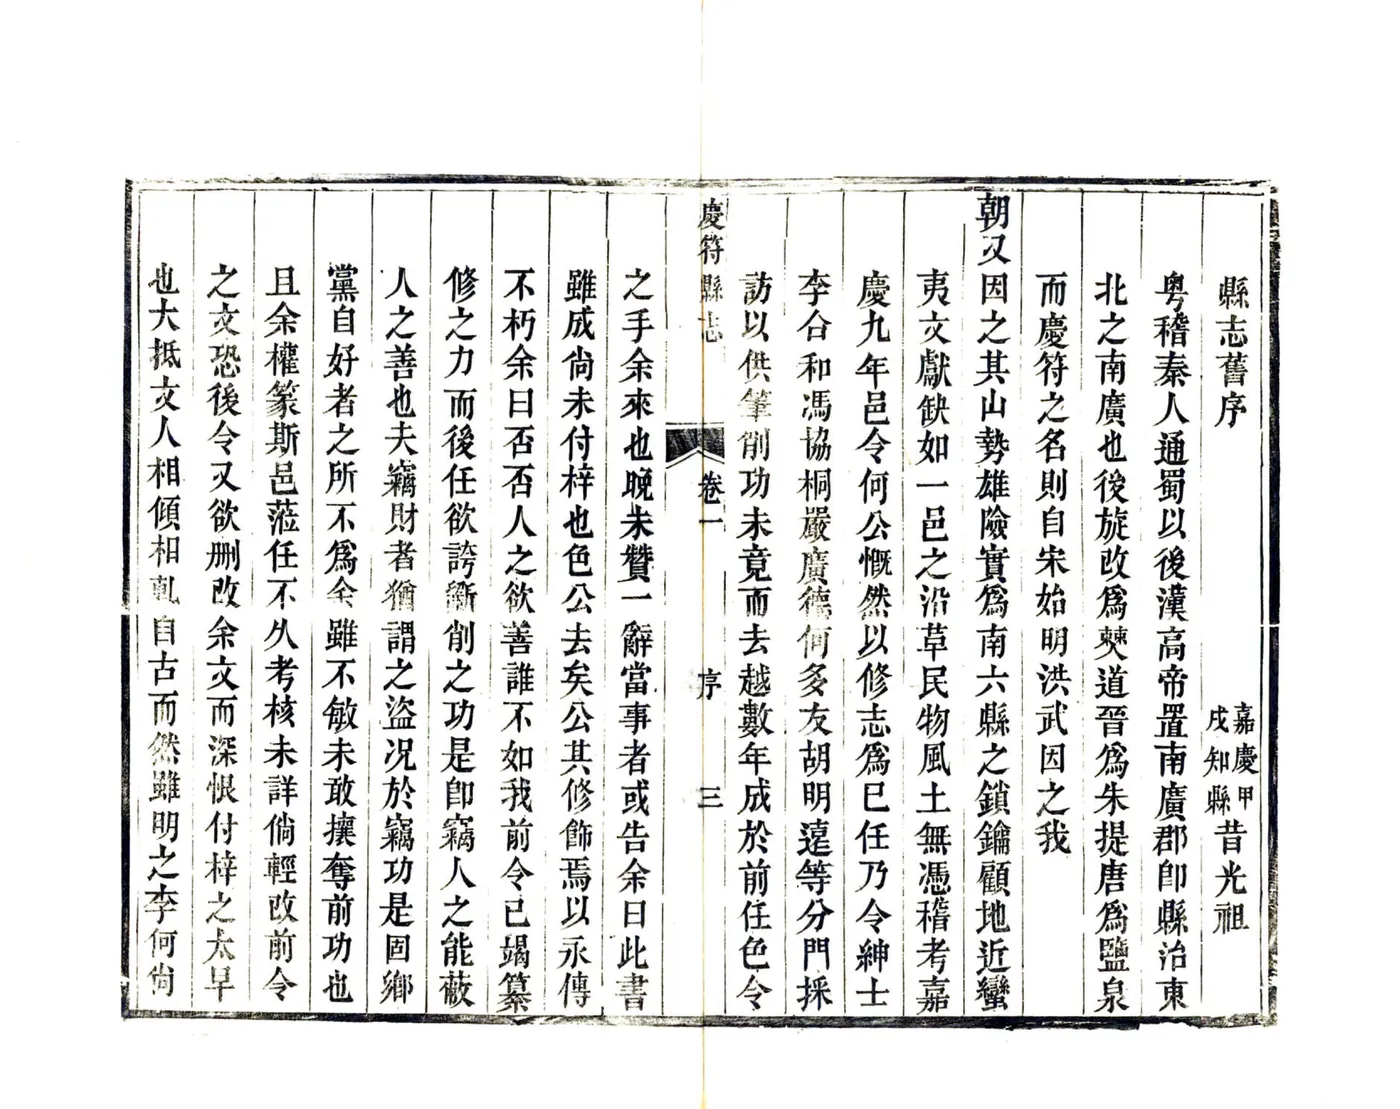 縣志舊序 嘉慶甲戌知縣昔光祖
粵稽秦人通蜀以後漢高帝置南廣郡卽縣治東
北之南廣也後旋改爲僰道晉爲朱提唐爲鹽泉
而慶符之名則自宋始明洪武因之我
朝又因之其山勢雄險實爲南六縣之鎖鑰顧地近蠻
夷文獻缺如一邑之沿草民物風土無憑稽考嘉
慶九年邑令何公慨然以修志爲巳任乃令紳士
李合和馮協桐嚴廣德何多友胡明遠等分門採
訪以供筆削功未竟而去越數年成於前任色令
慶符縣志 卷一 序 三
之手余來也晚未贊一辭當事者或告余曰此書
雖成尙未付梓也色公去矣公其修飾焉以永傳
不朽余曰否否人之欲善誰不如我前令已竭纂
修之力而後任欲誇斷削之功是卽竊人之能蔽
人之善也夫竊財者猶謂之盜况於竊功是固鄉
黨自好者之所不爲余雖不敏未敢攘奪前功也
且余權篆斯邑蒞任不久考核未詳倘輕改前令
之文恐後令又欲删改余文而深恨付梓之太早
也大抵文人相傾相軋自古而然雖明之李何尙